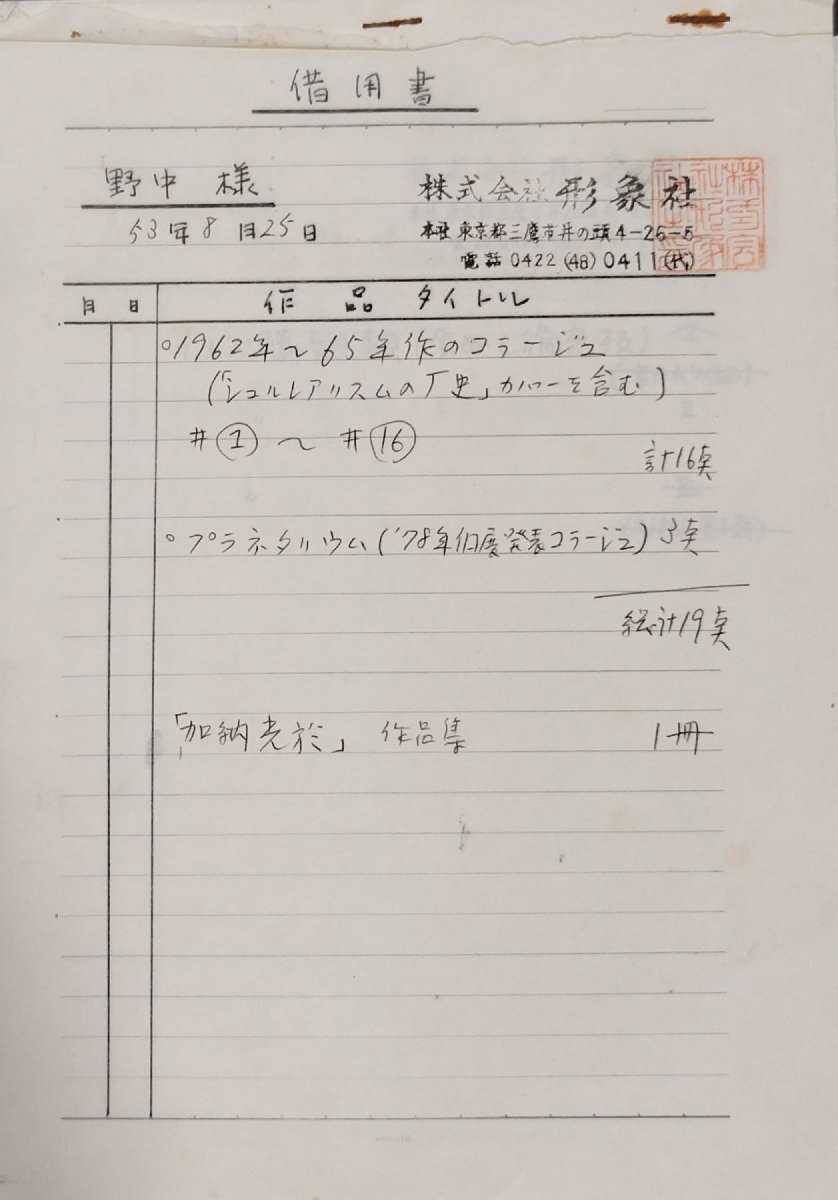 借用書
野中 様
53年8月25日
株式会社 形象社
本社 東京都三鷹市井の頭4-26-5
電話 0422 (48) 0411 (代)
月 日 作品タイトル
○1962年〜65年作のコラージュ
(「シュルレアリスムの丁史」カバーを含む)
#① 〜 #⑯
計16点
○プラネタリウム('78年個展発表コラージュ) 3点
総計19点
「加納光於」 作品集 1冊